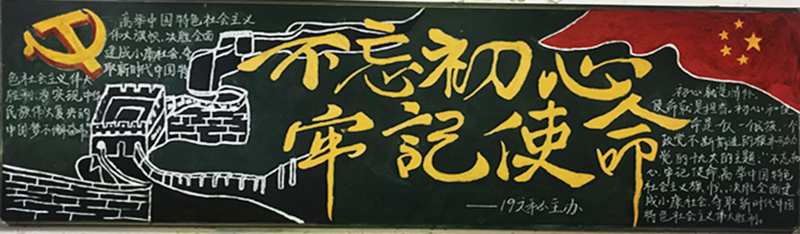 高举中国特色社会主义
伟大旗帜、决胜全面
建成小康社会、夺
取新时代中国特
色社会主义伟大
胜利、为实现中华
民族伟大复兴的
中国梦不懈奋斗
不忘初心
牢記使命
——192 主办
初心就是情怀、
使命就是担当。初心和使
命是 一个
政党不断前进的 动力
党的十九大的主题：不忘初
心、牢记使命高举中国特色
社会主义旗帜、决胜全面建
成小康社会、夺取新时代中国
特色社会主义伟大胜利。